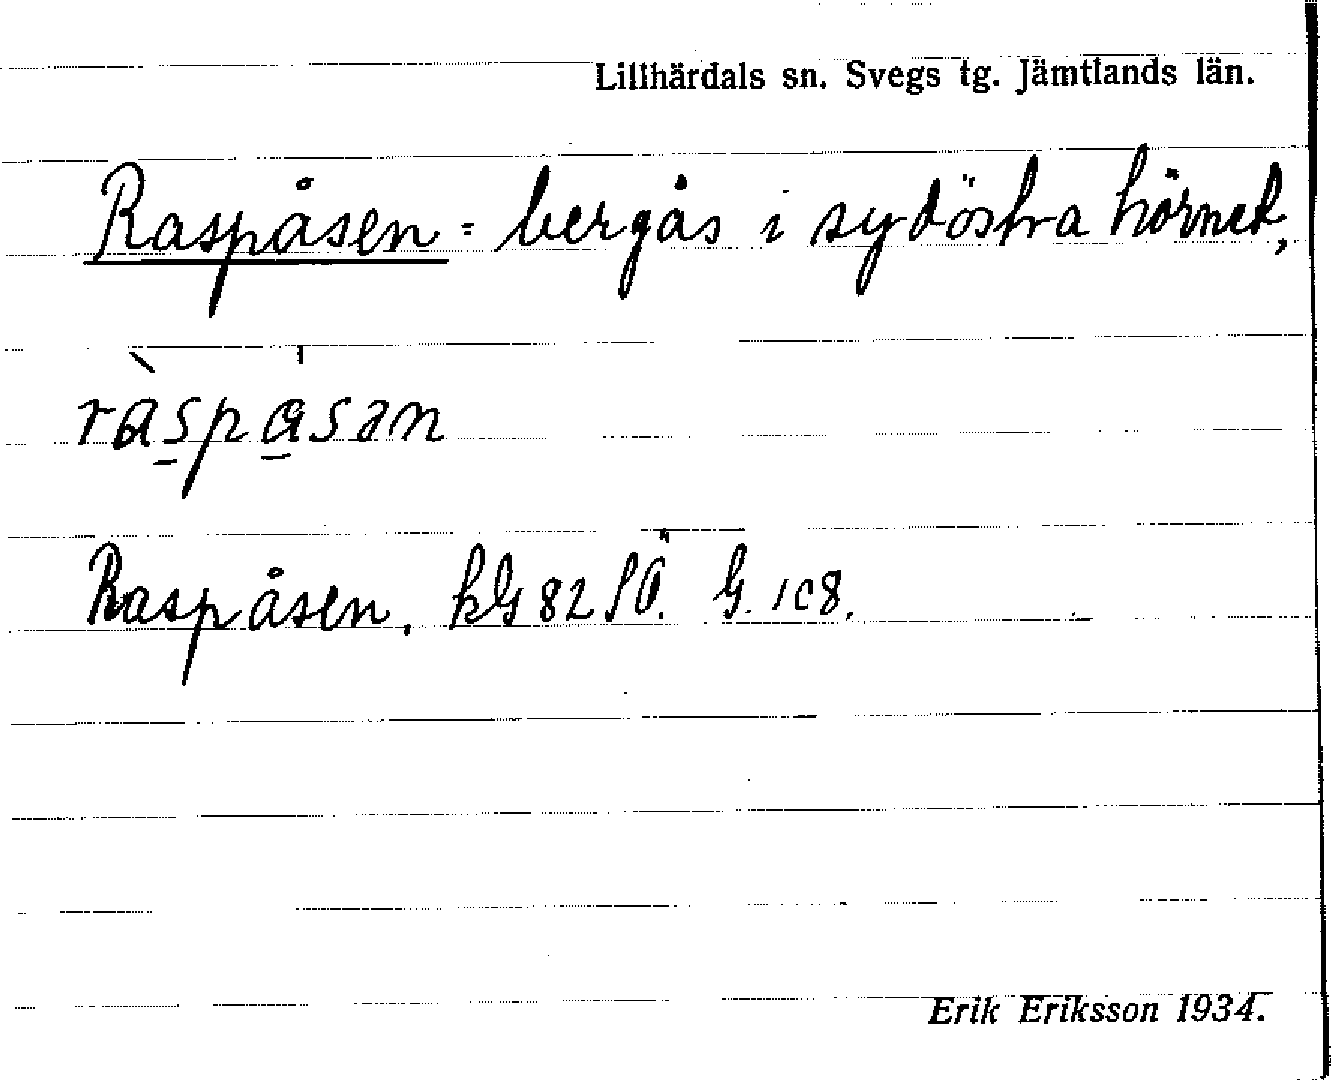 Lillhärdals sn. Svegs tg. Jämtlands län.
Raspåsen = bergås i sydöstra hörnet,
ràspåsən
Raspåsen. kG 82 SÖ. G. 108.
Erik Eriksson 1934.